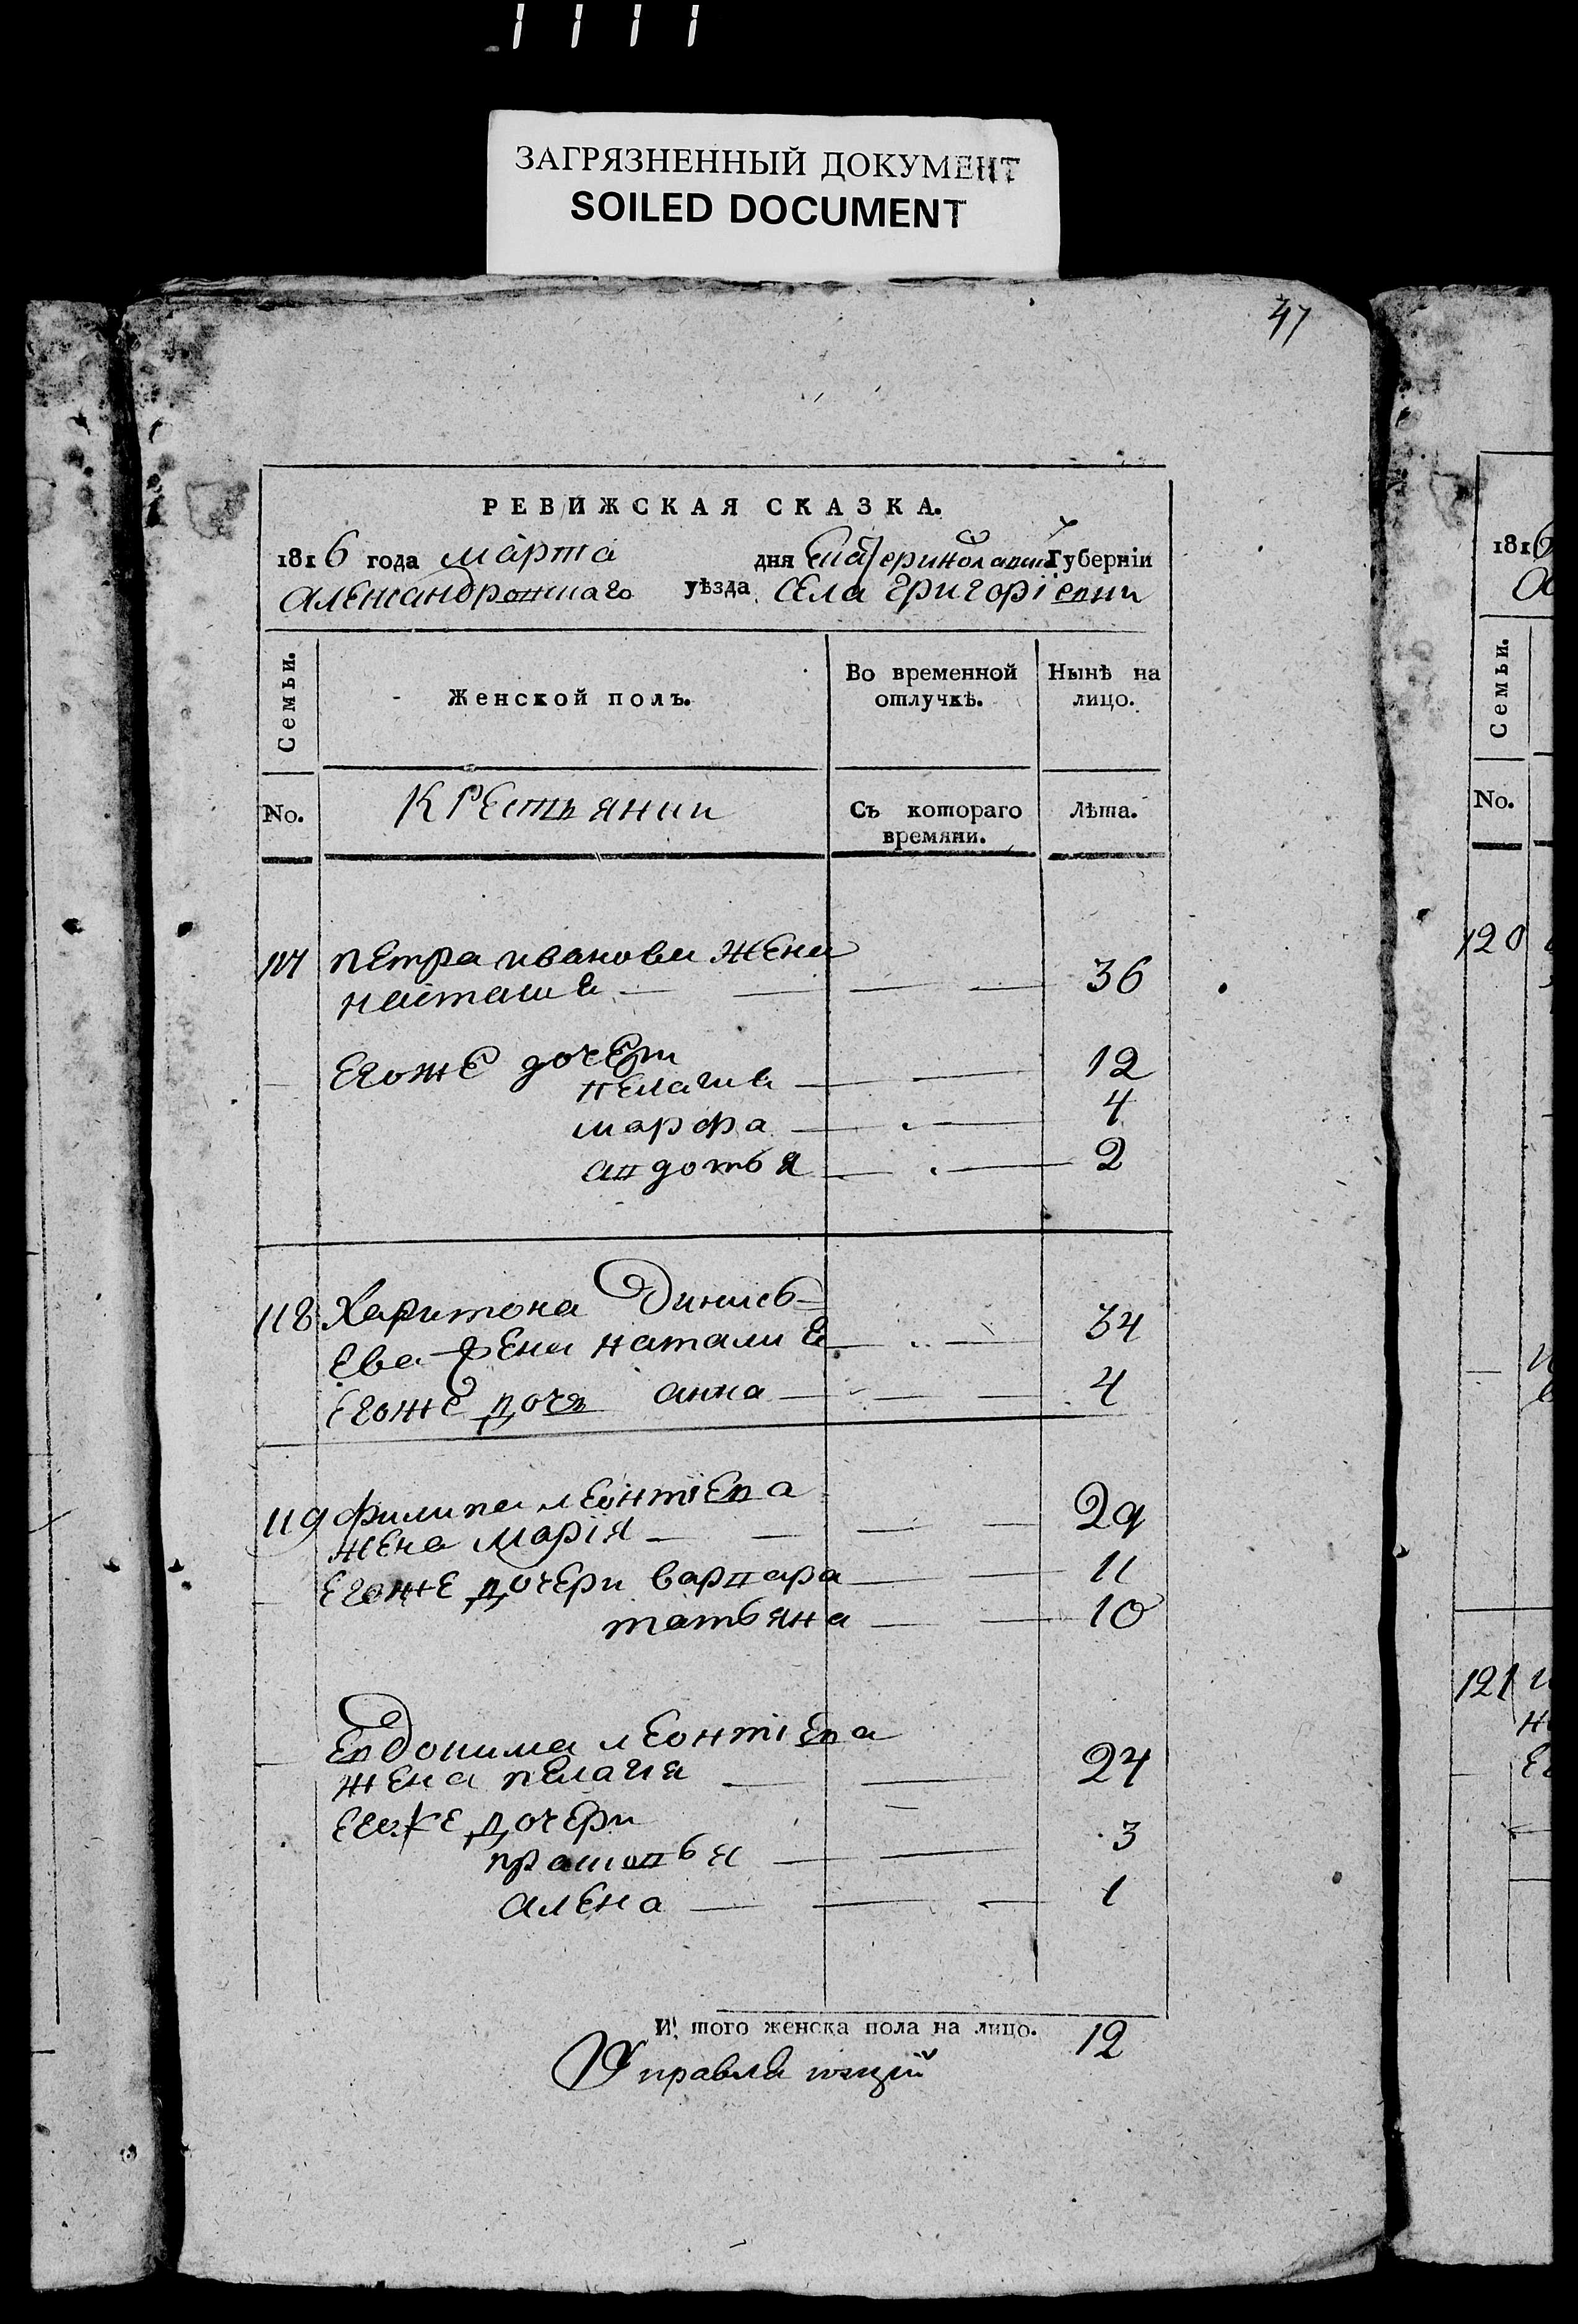 ЗАГРЯЗНЕННЫЙ ДОКУМЕНТ
SOILED DOCUMENT
47
РЕВИЖСКАЯ СКАЗКА.
1816 года марта дня Екатеринославской Губерніи
Александровскаго уѣзда села григоріевки
Семьи. Женской полъ. Во временной отлучкѣ. Нынѣ на лицо.
No. Крестьянии Съ котораго времяни. Лѣта.
117 петра иванова жена
настасия 36
егоже дочери
пелагия 12
марфа 4
авдотья 2
118 Харитона Динись-
ева жена наталия 34
егоже дочь анна 4
119 филипа леонтіева
жена марія 29
егоже дочери варвара 11
татьяна 10
Евдокима леонтіева
жена пелагия 24
егоже дочери
прасковья 3
алена 1
И того женска пола на лицо. 12
Управляющій
1816
Семьи.
No.
120
121